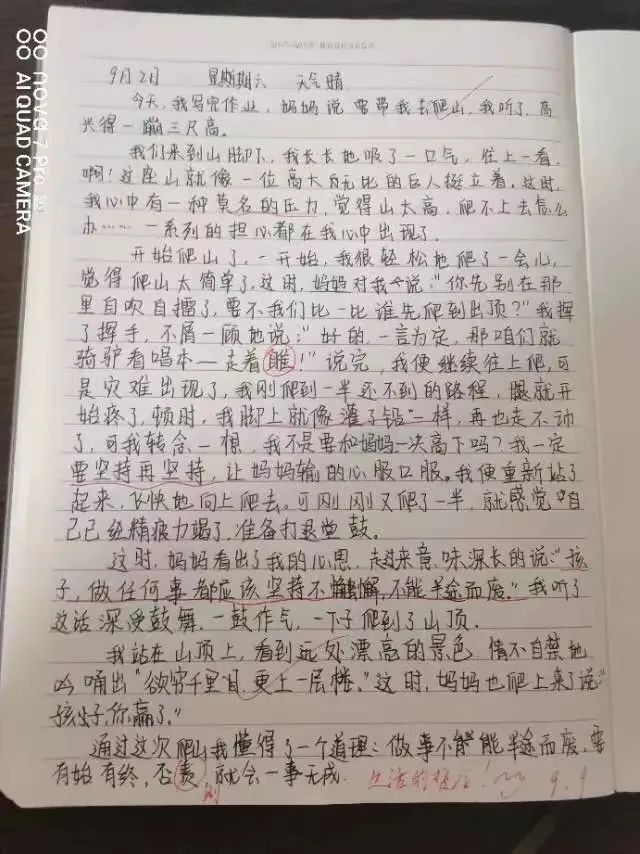 9月2日 星期六 天气晴
今天,我写完作业,妈妈说要带我去爬山,我听了,高
兴得一蹦三尺高。
我们来到山脚下,我长长地吸了一口气,往上一看,
啊!这座山就像一位高大无比的巨人挺立着。这时,
我心中有一种莫名的压力,觉得山太高,爬不上去怎么
办……一系列的担心都在我心中出现了。
开始爬山了,一开始,我很轻松地爬了一会儿,
觉得爬山太简单了。这时,妈妈对我说:"你先别在那
里自吹自擂了,要不我们比一比谁先爬到山顶?"我挥
了挥手,不屑一顾地说:"好的,一言为定,那咱们就
骑驴看唱本—走着瞧!"说完,我便继续往上爬,可
是灾难出现了,我刚爬到一半还不到的路程,腿就开
始疼了,顿时,我脚上就像灌了铅一样,再也走不动
了,可我转念一想,我不是要和妈妈一决高下吗?我一定
要坚持再坚持,让妈妈输的心服口服。我便重新站了
起来,飞快地向上爬去。可刚刚又爬了一半,就感觉自
己已经精疲力竭了,准备打退堂鼓。
这时,妈妈看出了我的心思,走过来意味深长的说:"孩
子,做任何事都应该坚持不懈,不能半途而废。"我听了
这话深受鼓舞,一鼓作气,一下子爬到了山顶。
我站在山顶上,看到远处漂亮的景色,情不自禁地
吟诵出"欲穷千里目,更上一层楼。"这时,妈妈也爬上来了说:"
孩子,你赢了。"
通过这次爬山我懂得了一个道理:做事不能半途而废,要
有始有终,否则,就会一事无成. 9.9
AI QUAD CAMERA